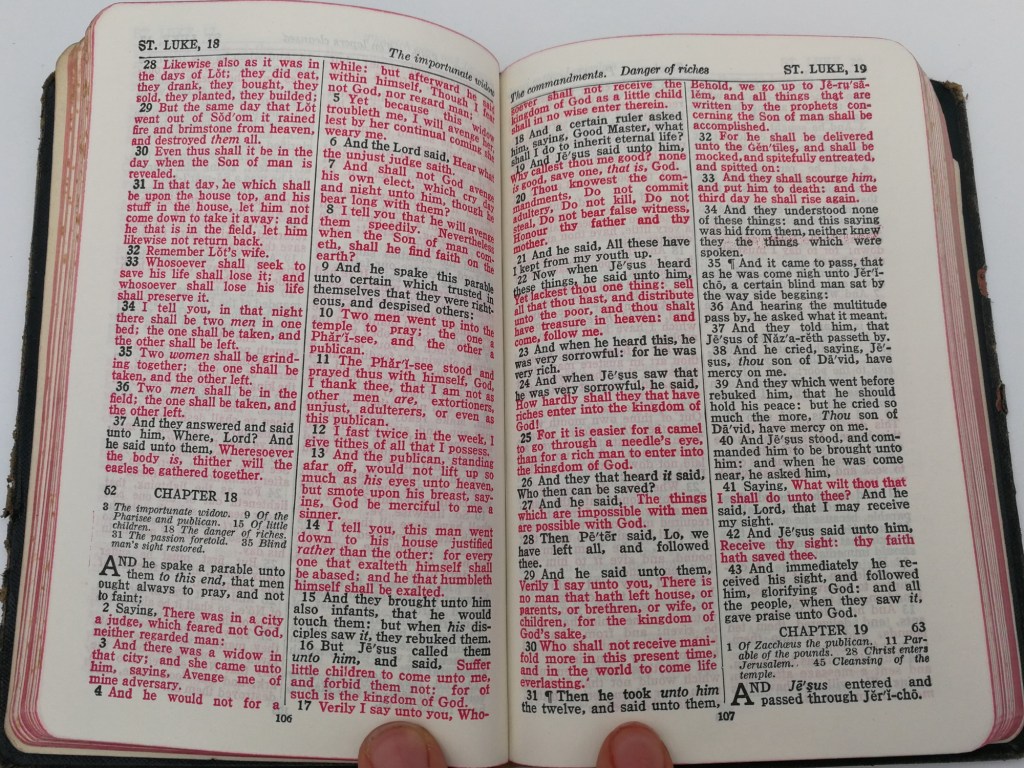 ST. LUKE, 18
The importunate widow
28 Likewise also as it was in
the days of Lŏt; they did eat,
they drank, they bought, they
sold, they planted, they builded;
29 But the same day that Lŏt
went out of Sŏd'om it rained
fire and brimstone from heaven,
and destroyed them all.
30 Even thus shall it be in the
day when the Son of man is
revealed.
31 In that day, he which shall
be upon the house top, and his
stuff in the house, let him not
come down to take it away: and
he that is in the field, let him
likewise not return back.
32 Remember Lŏt's wife.
33 Whosoever shall seek to
save his life shall lose it; and
whosoever shall lose his life
shall preserve it.
34 I tell you, in that night
there shall be two men in one
bed; the one shall be taken, and
the other shall be left.
35 Two women shall be grind-
ing together; the one shall be
taken, and the other left.
36 Two men shall be in the
field; the one shall be taken, and
the other left.
37 And they answered and said
unto him, Where, Lord? And
he said unto them, Wheresoever
the body is, thither will the
eagles be gathered together.
62
CHAPTER 18
3 The importunate widow. 9 Of the
Pharisee and publican. 15 Of little
children. 18 The danger of riches.
31 The passion foretold. 35 Blind
man's sight restored.
AND he spake a parable unto
them to this end, that men
ought always to pray, and not
to faint;
2 Saying, There was in a city
a judge, which feared not God,
neither regarded man:
3 And there was a widow in
that city; and she came unto
him, saying, Avenge me of
mine adversary.
4 And he would not for a
while: but afterward he said
within himself, Though I fear
not God, nor regard man;
5 Yet because this widow
troubleth me, I will avenge her,
lest by her continual coming she
weary me.
6 And the Lord said, Hear what
the unjust judge saith.
7 And shall not God avenge
his own elect, which cry day
and night unto him, though he
bear long with them?
8 I tell you that he will avenge
them speedily. Nevertheless
when the Son of man com-
eth, shall he find faith on the
earth?
9 And he spake this parable
unto certain which trusted in
themselves that they were right-
eous, and despised others:
10 Two men went up into the
temple to pray; the one a
Phăr'ĭ-see, and the other a
publican.
11 The Phăr'ĭ-see stood and
prayed thus with himself, God,
I thank thee, that I am not as
other men are, extortioners,
unjust, adulterers, or even as
this publican.
12 I fast twice in the week, I
give tithes of all that I possess.
13 And the publican, standing
afar off, would not lift up so
much as his eyes unto heaven,
but smote upon his breast, say-
ing, God be merciful to me a
sinner.
14 I tell you, this man went
down to his house justified
rather than the other: for every
one that exalteth himself shall
be abased; and he that humbleth
himself shall be exalted.
15 And they brought unto him
also infants, that he would
touch them: but when his dis-
ciples saw it, they rebuked them.
16 But Jē'ṣus called them
unto him, and said, Suffer
little children to come unto me,
and forbid them not: for of
such is the kingdom of God.
17 Verily I say unto you, Who-
106
The commandments. Danger of riches
ST. LUKE, 19
soever shall not receive the
kingdom of God as a little child
shall in no wise enter therein.
18 And a certain ruler asked
him, saying, Good Master, what
shall I do to inherit eternal life?
19 And Jē'ṣus said unto him,
Why callest thou me good? none
is good, save one, that is, God.
20 Thou knowest the com-
mandments, Do not commit
adultery, Do not kill, Do not
steal, Do not bear false witness,
Honour thy father and thy
mother.
21 And he said, All these have
I kept from my youth up.
22 Now when Jē'ṣus heard
these things, he said unto him,
Yet lackest thou one thing: sell
all that thou hast, and distribute
unto the poor, and thou shalt
have treasure in heaven: and
come, follow me.
23 And when he heard this, he
was very sorrowful: for he was
very rich.
24 And when Jē'ṣus saw that
he was very sorrowful, he said,
How hardly shall they that have
riches enter into the kingdom of
God!
25 For it is easier for a camel
to go through a needle's eye,
than for a rich man to enter into
the kingdom of God.
26 And they that heard it said,
Who then can be saved?
27 And he said, The things
which are impossible with men
are possible with God.
28 Then Pē'tẽr said, Lo, we
have left all, and followed
thee.
29 And he said unto them,
Verily I say unto you, There is
no man that hath left house, or
parents, or brethren, or wife, or
children, for the kingdom of
God's sake,
30 Who shall not receive mani-
fold more in this present time,
and in the world to come life
everlasting.
31 ¶ Then he took unto him
the twelve, and said unto them,
Behold, we go up to Jē-rṳ'sā-
lĕm, and all things that are
written by the prophets con-
cerning the Son of man shall be
accomplished.
32 For he shall be delivered
unto the Gĕn'tīles, and shall be
mocked, and spitefully entreated,
and spitted on:
33 And they shall scourge him,
and put him to death: and the
third day he shall rise again.
34 And they understood none
of these things: and this saying
was hid from them, neither knew
they the things which were
spoken.
35 ¶ And it came to pass, that
as he was come nigh unto Jĕr'ĭ-
chō, a certain blind man sat by
the way side begging:
36 And hearing the multitude
pass by, he asked what it meant.
37 And they told him, that
Jē'ṣus of Năz'a-rĕth passeth by.
38 And he cried, saying, Jē'-
ṣus, thou son of Dā'vid, have
mercy on me.
39 And they which went before
rebuked him, that he should
hold his peace: but he cried so
much the more, Thou son of
Dā'vĭd, have mercy on me.
40 And Jē'ṣus stood, and com-
manded him to be brought unto
him: and when he was come
near, he asked him,
41 Saying, What wilt thou that
I shall do unto thee? And he
said, Lord, that I may receive
my sight.
42 And Jē'ṣus said unto him,
Receive thy sight: thy faith
hath saved thee.
43 And immediately he re-
ceived his sight, and followed
him, glorifying God: and all
the people, when they saw it,
gave praise unto God.
CHAPTER 19
63
1 Of Zacchæus the publican. 11 Par-
able of the pounds. 28 Christ enters
Jerusalem. 45 Cleansing of the
temple.
AND Jē'ṣus entered and
passed through Jĕr'ĭ-chō.
107